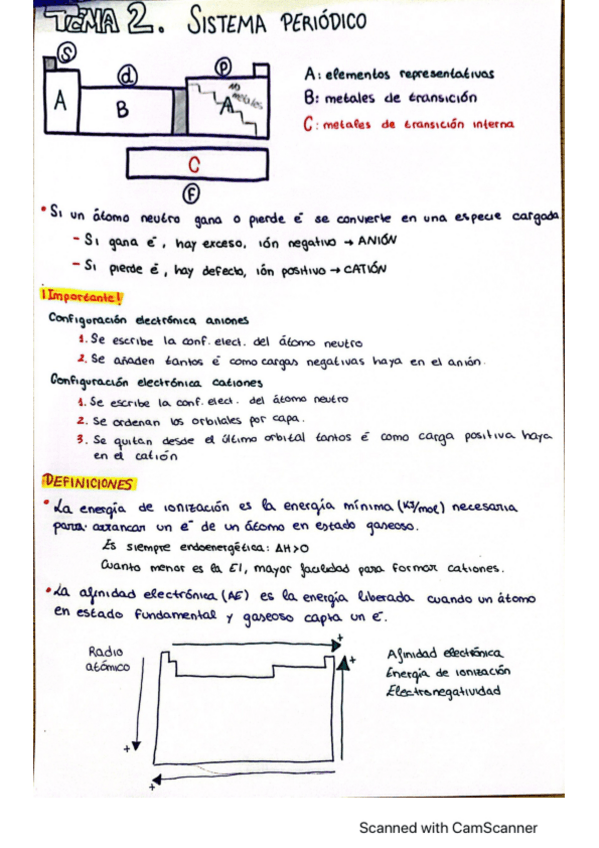 TEMA 2. SISTEMA PERIÓDICO
S
d
P
A
B
no metales
A
C
F
A: elementos representativos
B: metales de transición
C: metales de transición interna
• Si un átomo neutro gana o pierde é se convierte en una especie cargada
- Si gana é, hay exceso, ión negativo → ANIÓN
- Si pierde é, hay defecto, ión positivo → CATIÓN
¡Importante!
Configuración electrónica aniones
1. Se escribe la conf. elect. del átomo neutro
2. Se añaden tantos é como cargas negativas haya en el anión.
Configuración electrónica cationes
1. Se escribe la conf. elect. del átomo neutro
2. Se ordenan los orbitales por capa.
3. Se quitan desde el último orbital tantos é como carga positiva haya
en el catión
DEFINICIONES
• La energía de ionización es la energía mínima (KJ/mol) necesaria
para arrancar un e⁻ de un átomo en estado gaseoso.
Es siempre endoenergética: ΔH>0
Cuanto menor es la EI, mayor facilidad para formar cationes.
• La afinidad electrónica (AE) es la energía liberada cuando un átomo
en estado fundamental y gaseoso capta un é.
Radio
atómico
+
+
+
+
Afinidad electrónica
Energía de ionización
Electronegatividad
Scanned with CamScanner